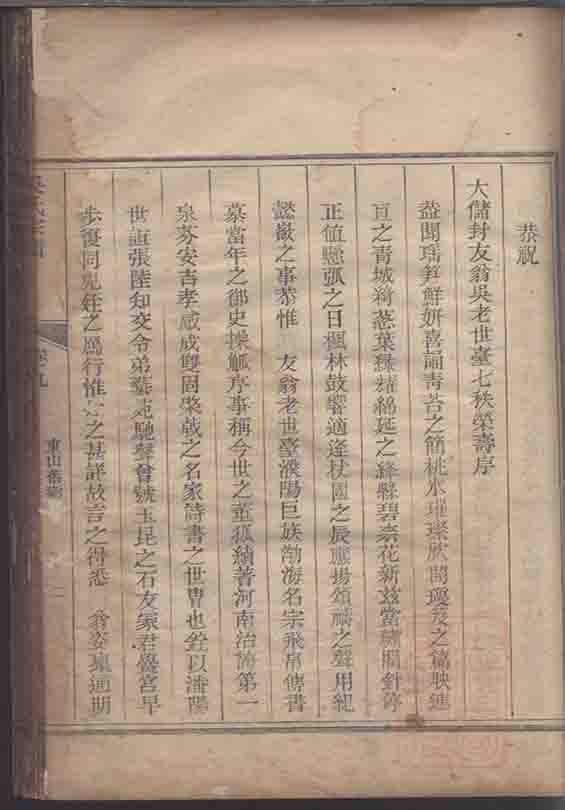 恭祝
大儲封友翁吳老世臺七秩榮壽序
蓋聞瑤笋鮮妍喜誦青苔之簡桃水璀璨欣開瓊笈之篇映
直之青城蒨蔥葉綠耀綿延之絳縣碧柰花新茲當繡閣針停
正值懸弧之日楓林鼓響適逢杖國之辰應揚頌禱之聲用紀
懿嶶之事恭惟 友翁老世臺濮陽巨族渤海名宗飛帛傳書
慕當年之御史操觚序事稱今世之董狐績著河南治謝第一
泉芬安吉孝感成雙固棨戟之名家詩書之世冑也銓以潘陽
世誼張陸知交令弟馳聲曾號玉昆之石友家君黌宮早
步復同兒姪之雁行惟之甚詳故言之得悉 翁姿稟通明
東山